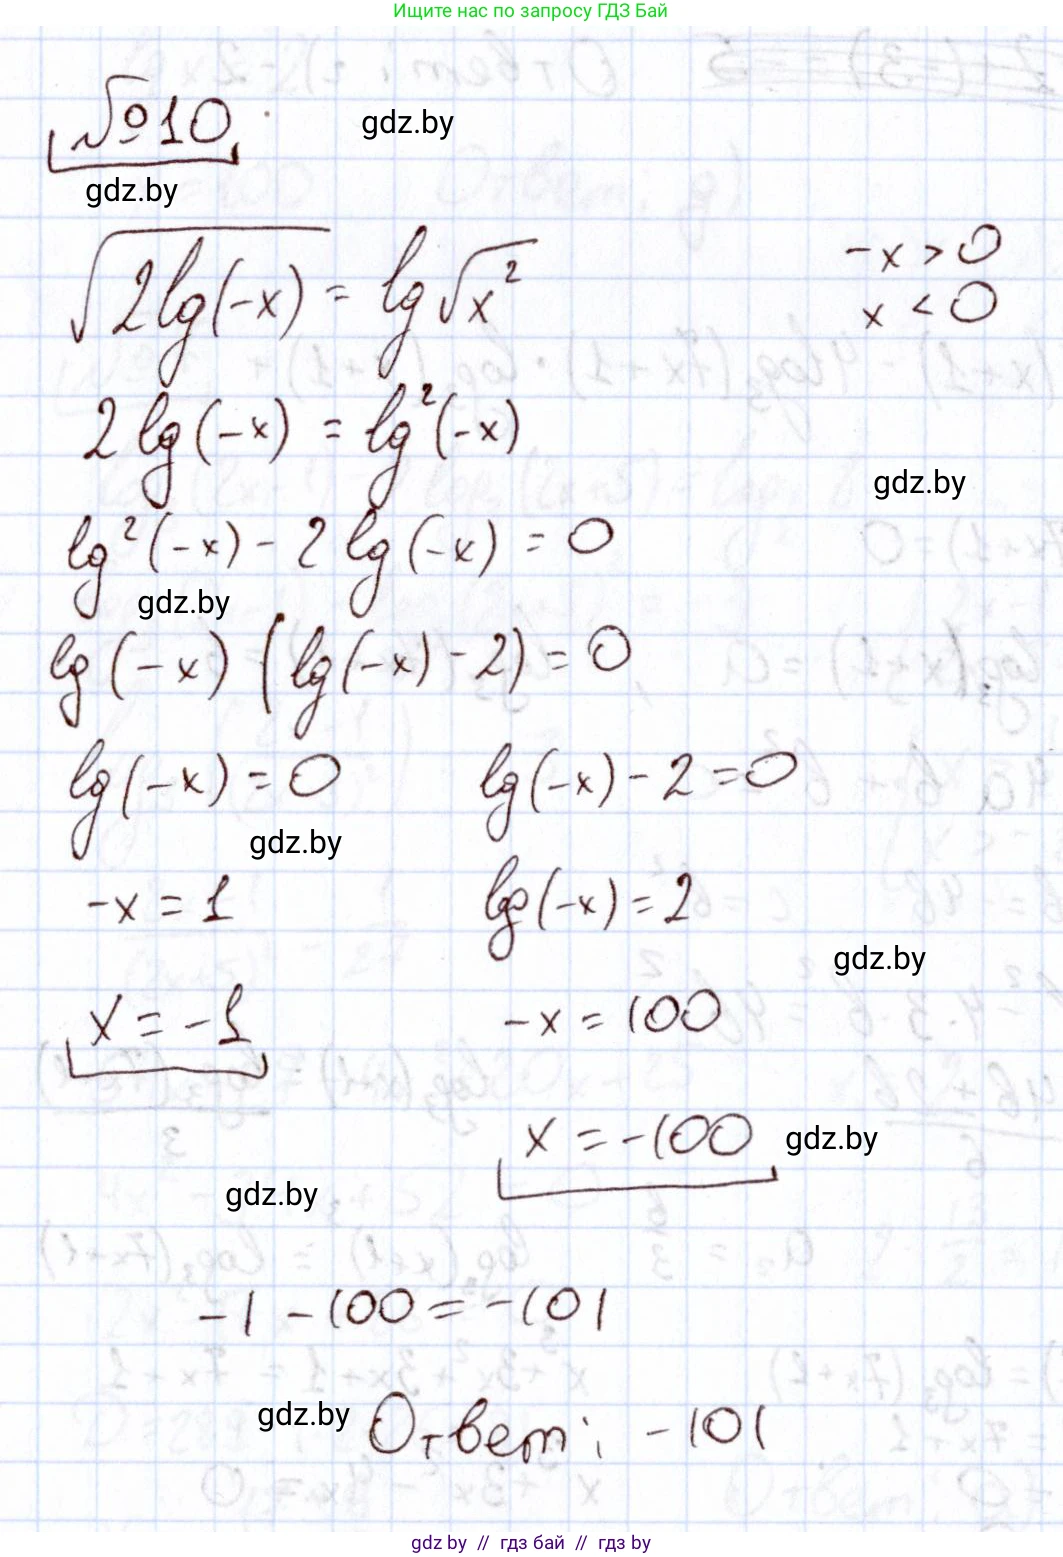 Ищите нас по запросу ГДЗ Бай
№10
gdz.by
gdz.by
√(2lg(-x)) = lg√(x²)
-x > 0
x < 0
2lg(-x) = lg²(-x)
gdz.by
lg²(-x) - 2lg(-x) = 0
gdz.by
lg(-x) (lg(-x) - 2) = 0
lg(-x) = 0
lg(-x) - 2 = 0
gdz.by
-x = 1
lg(-x) = 2
gdz.by
x = -1
-x = 100
x = -100
gdz.by
gdz.by
-1 - 100 = -101
gdz.by
Ответ: -101
gdz by // гдз бай // гдз by